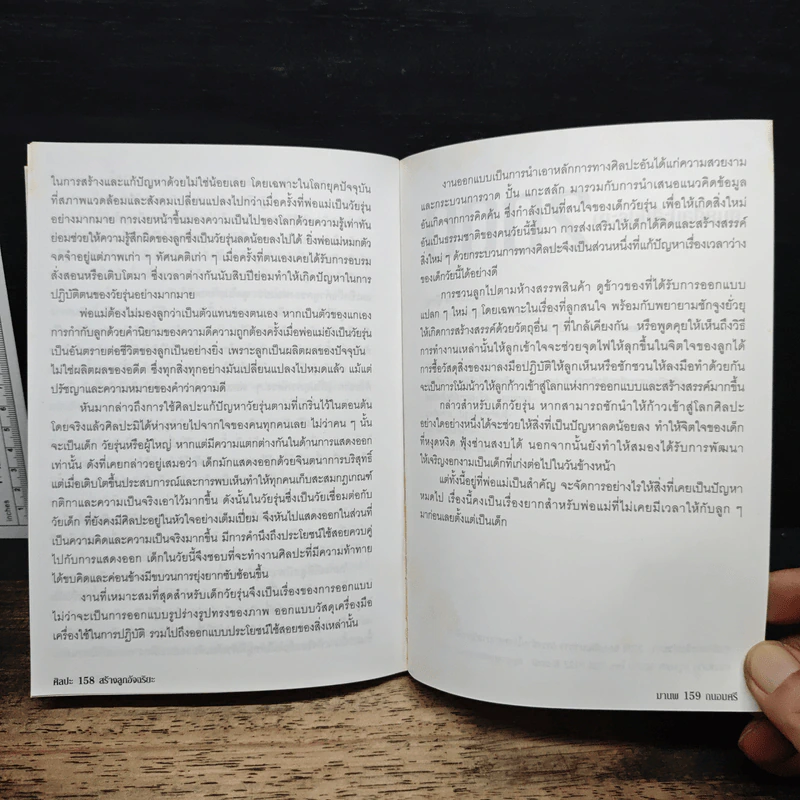 ในการสร้างและแก้ปัญหาด้วยไม่ใช่น้อยเลย โดยเฉพาะในโลกยุคปัจจุบัน
ที่สภาพแวดล้อมและสังคมเปลี่ยนแปลงไปกว่าเมื่อครั้งที่พ่อแม่เป็นวัยรุ่น
อย่างมากมาย การเงยหน้าขึ้นมองความเป็นไปของโลกด้วยความรู้เท่าทัน
ย่อมช่วยให้ความรู้สึกผิดของลูกซึ่งเป็นวัยรุ่นลดน้อยลงไปได้ ยิ่งพ่อแม่หมกตัว
จดจำอยู่แต่ภาพเก่า ๆ ทัศนคติเก่า ๆ เมื่อครั้งที่ตนเองเคยได้รับการอบรม
สั่งสอนหรือเติบโตมา ซึ่งเวลาต่างกันนับสิบปีย่อมทำให้เกิดปัญหาในการ
ปฏิบัติตนของวัยรุ่นอย่างมากมาย
พ่อแม่ต้องไม่มองลูกว่าเป็นตัวแทนของตนเอง หากเป็นตัวของแกเอง
การกำกับลูกด้วยค่านิยามของความดีความถูกต้องครั้งเมื่อพ่อแม่ยังเป็นวัยรุ่น
เป็นอันตรายต่อชีวิตของลูกเป็นอย่างยิ่ง เพราะลูกเป็นผลิตผลของปัจจุบัน
ไม่ใช่ผลิตผลของอดีต ซึ่งทุกสิ่งทุกอย่างมันเปลี่ยนแปลงไปหมดแล้ว แม้แต่
ปรัชญาและความหมายของคำว่าความดี
หันมากล่าวถึงการใช้ศิลปะแก้ปัญหาวัยรุ่นตามที่เกริ่นไว้ในตอนต้น
โดยจริงแล้วศิลปะมิได้ห่างหายไปจากใจของคนทุกคนเลย ไม่ว่าคน ๆ นั้น
จะเป็นเด็ก วัยรุ่นหรือผู้ใหญ่ หากแต่มีความแตกต่างกันในด้านการแสดงออก
เท่านั้น ดังที่เคยกล่าวอยู่เสมอว่า เด็กมักแสดงออกด้วยจินตนาการบริสุทธิ์
แต่เมื่อเติบโตขึ้นประสบการณ์และการพบเห็นทำให้ทุกคนเก็บสะสมกฎเกณฑ์
กติกาและความเป็นจริงเอาไว้มากขึ้น ดังนั้นในวัยรุ่นซึ่งเป็นวัยเชื่อมต่อกับ
วัยเด็ก ที่ยังคงมีศิลปะอยู่ในหัวใจอย่างเต็มเปี่ยม จึงหันไปแสดงออกในส่วนที่
เป็นความคิดและความเป็นจริงมากขึ้น มีการคำนึงถึงประโยชน์ใช้สอยควบคู่
ไปกับการแสดงออก เด็กในวัยนี้จึงชอบที่จะทำงานศิลปะที่มีความท้าทาย
ได้ขบคิดและค่อนข้างมีขบวนการยุ่งยากซับซ้อนขึ้น
งานที่เหมาะสมที่สุดสำหรับเด็กวัยรุ่นจึงเป็นเรื่องของการออกแบบ
ไม่ว่าจะเป็นการออกแบบรูปร่างรูปทรงของภาพ ออกแบบวัสดุเครื่องมือ
เครื่องใช้ในการปฏิบัติ รวมไปถึงออกแบบประโยชน์ใช้สอยของสิ่งเหล่านั้น
ศิลปะ 158 สร้างลูกอัจฉริยะ
งานออกแบบเป็นการนำเอาหลักการทางศิลปะอันได้แก่ความสวยงาม
และกระบวนการวาด ปั้น แกะสลัก มารวมกับการนำเสนอแนวคิดข้อมูล
อันเกิดจากการคิดค้น ซึ่งกำลังเป็นที่สนใจของเด็กวัยรุ่น เพื่อให้เกิดสิ่งใหม่
อันเป็นธรรมชาติของคนวัยนี้ขึ้นมา การส่งเสริมให้เด็กได้คิดและสร้างสรรค์
สิ่งใหม่ ๆ ด้วยกระบวนการทางศิลปะจึงเป็นส่วนหนึ่งที่แก้ปัญหาเรื่องเวลาว่าง
ของเด็กวัยนี้ได้อย่างดี
การชวนลูกไปตามห้างสรรพสินค้า ดูข้าวของที่ได้รับการออกแบบ
แปลก ๆ ใหม่ ๆ โดยเฉพาะในเรื่องที่ลูกสนใจ พร้อมกับพยายามชักจูงยั่วยุ
ให้เกิดการสร้างสรรค์ด้วยวัตถุอื่น ๆ ที่ใกล้เคียงกัน หรือพูดคุยให้เห็นถึงวิธี
การทำงานเหล่านั้นให้ลูกเข้าใจจะช่วยจุดไฟให้ลุกขึ้นในจิตใจของลูกได้
การซื้อวัสดุสิ่งของมาลงมือปฏิบัติให้ลูกเห็นหรือชักชวนให้ลงมือทำด้วยกัน
จะเป็นการโน้มน้าวให้ลูกก้าวเข้าสู่โลกแห่งการออกแบบและสร้างสรรค์มากขึ้น
กล่าวสำหรับเด็กวัยรุ่น หากสามารถชักนำให้ก้าวเข้าสู่โลกศิลปะ
อย่างใดอย่างหนึ่งได้จะช่วยให้สิ่งที่เป็นปัญหาลดน้อยลง ทำให้จิตใจของเด็ก
ที่หงุดหงิด ฟุ้งซ่านสงบได้ นอกจากนั้นยังทำให้สมองได้รับการพัฒนา
ให้เจริญงอกงามเป็นเด็กที่เก่งต่อไปในวันข้างหน้า
แต่ทั้งนี้อยู่ที่พ่อแม่เป็นสำคัญ จะจัดการอย่างไรให้สิ่งที่เคยเป็นปัญหา
หมดไป เรื่องนี้คงเป็นเรื่องยากสำหรับพ่อแม่ที่ไม่เคยมีเวลาให้กับลูก ๆ
มาก่อนเลยตั้งแต่เป็นเด็ก
มานพ 159 ถนอมศรี
inches